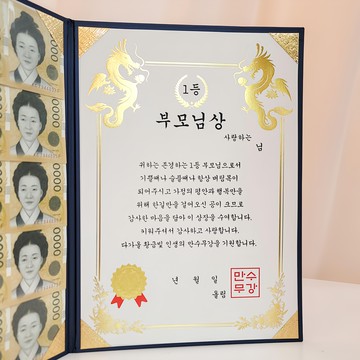 1등
부모님상
사랑하는
님
귀하는 존경하는 1등 부모님으로서
기쁠때나 슬플때나 항상 버팀목이
되어주시고 가정의 평안과 행복만을
위해 한길만을 걸어오신 공이 크므로
감사한 마음을 담아 이 상장을 수여합니다.
키워주셔서 감사하고 사랑합니다.
다가올 황금빛 인생의 만수무강을 기원합니다.
년 월 일
올림
만수
무강